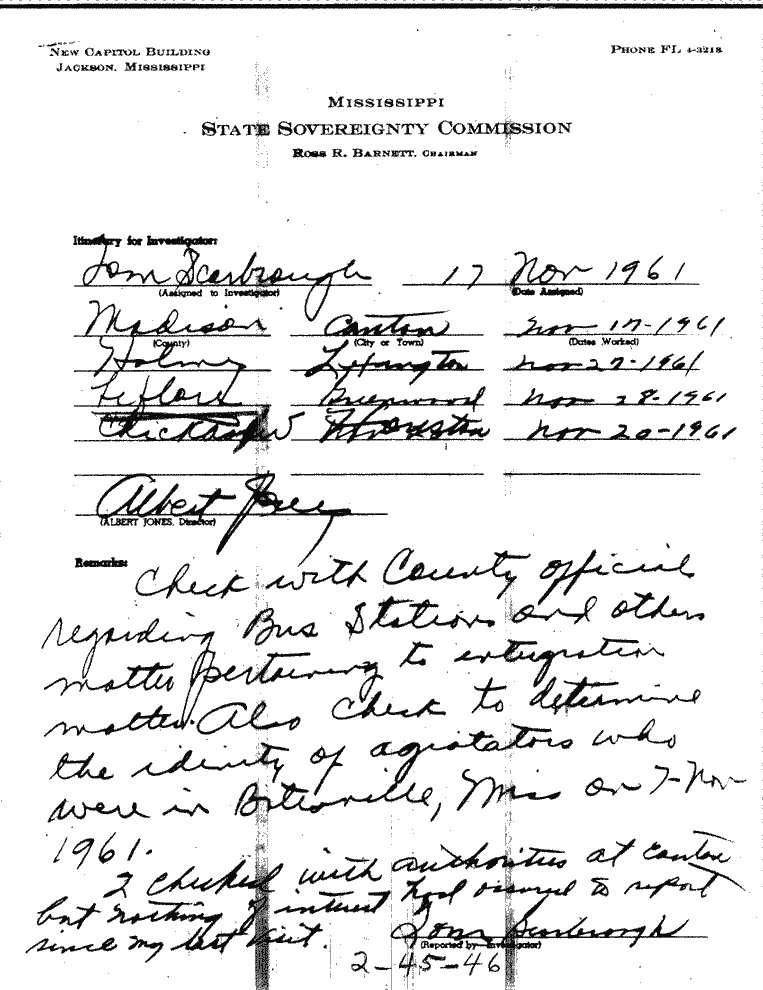 NEW CAPITOL BUILDING
JACKSON, MISSISSIPPI
PHONE FL 4-3218
MISSISSIPPI
STATE SOVEREIGNTY COMMISSION
ROSS R. BARNETT, CHAIRMAN
Itinerary for Investigator:
Tom Scarbrough 17 Nov 1961
(Assigned to Investigator) (Date Assigned)
Madison Canton Nov 17-1961
(County) (City or Town) (Dates Worked)
Holmes Lexington Nov 27-1961
Leflore Greenwood Nov 28-1961
Chickasaw Houston Nov 20-1961
Albert Jones
(ALBERT JONES, Director)
Remarks:
Check with County official
regarding Bus Stations and others
matter pertaining to integration
matter. Also check to determine
the idinity of agiotators who
were in Batesville, Miss on 7-Nov
1961.
I checked with authorities at Canton
but nothing of interest had occured to report
since my last visit. Tom Scarbrough
(Reported by Investigator)
2-45-46